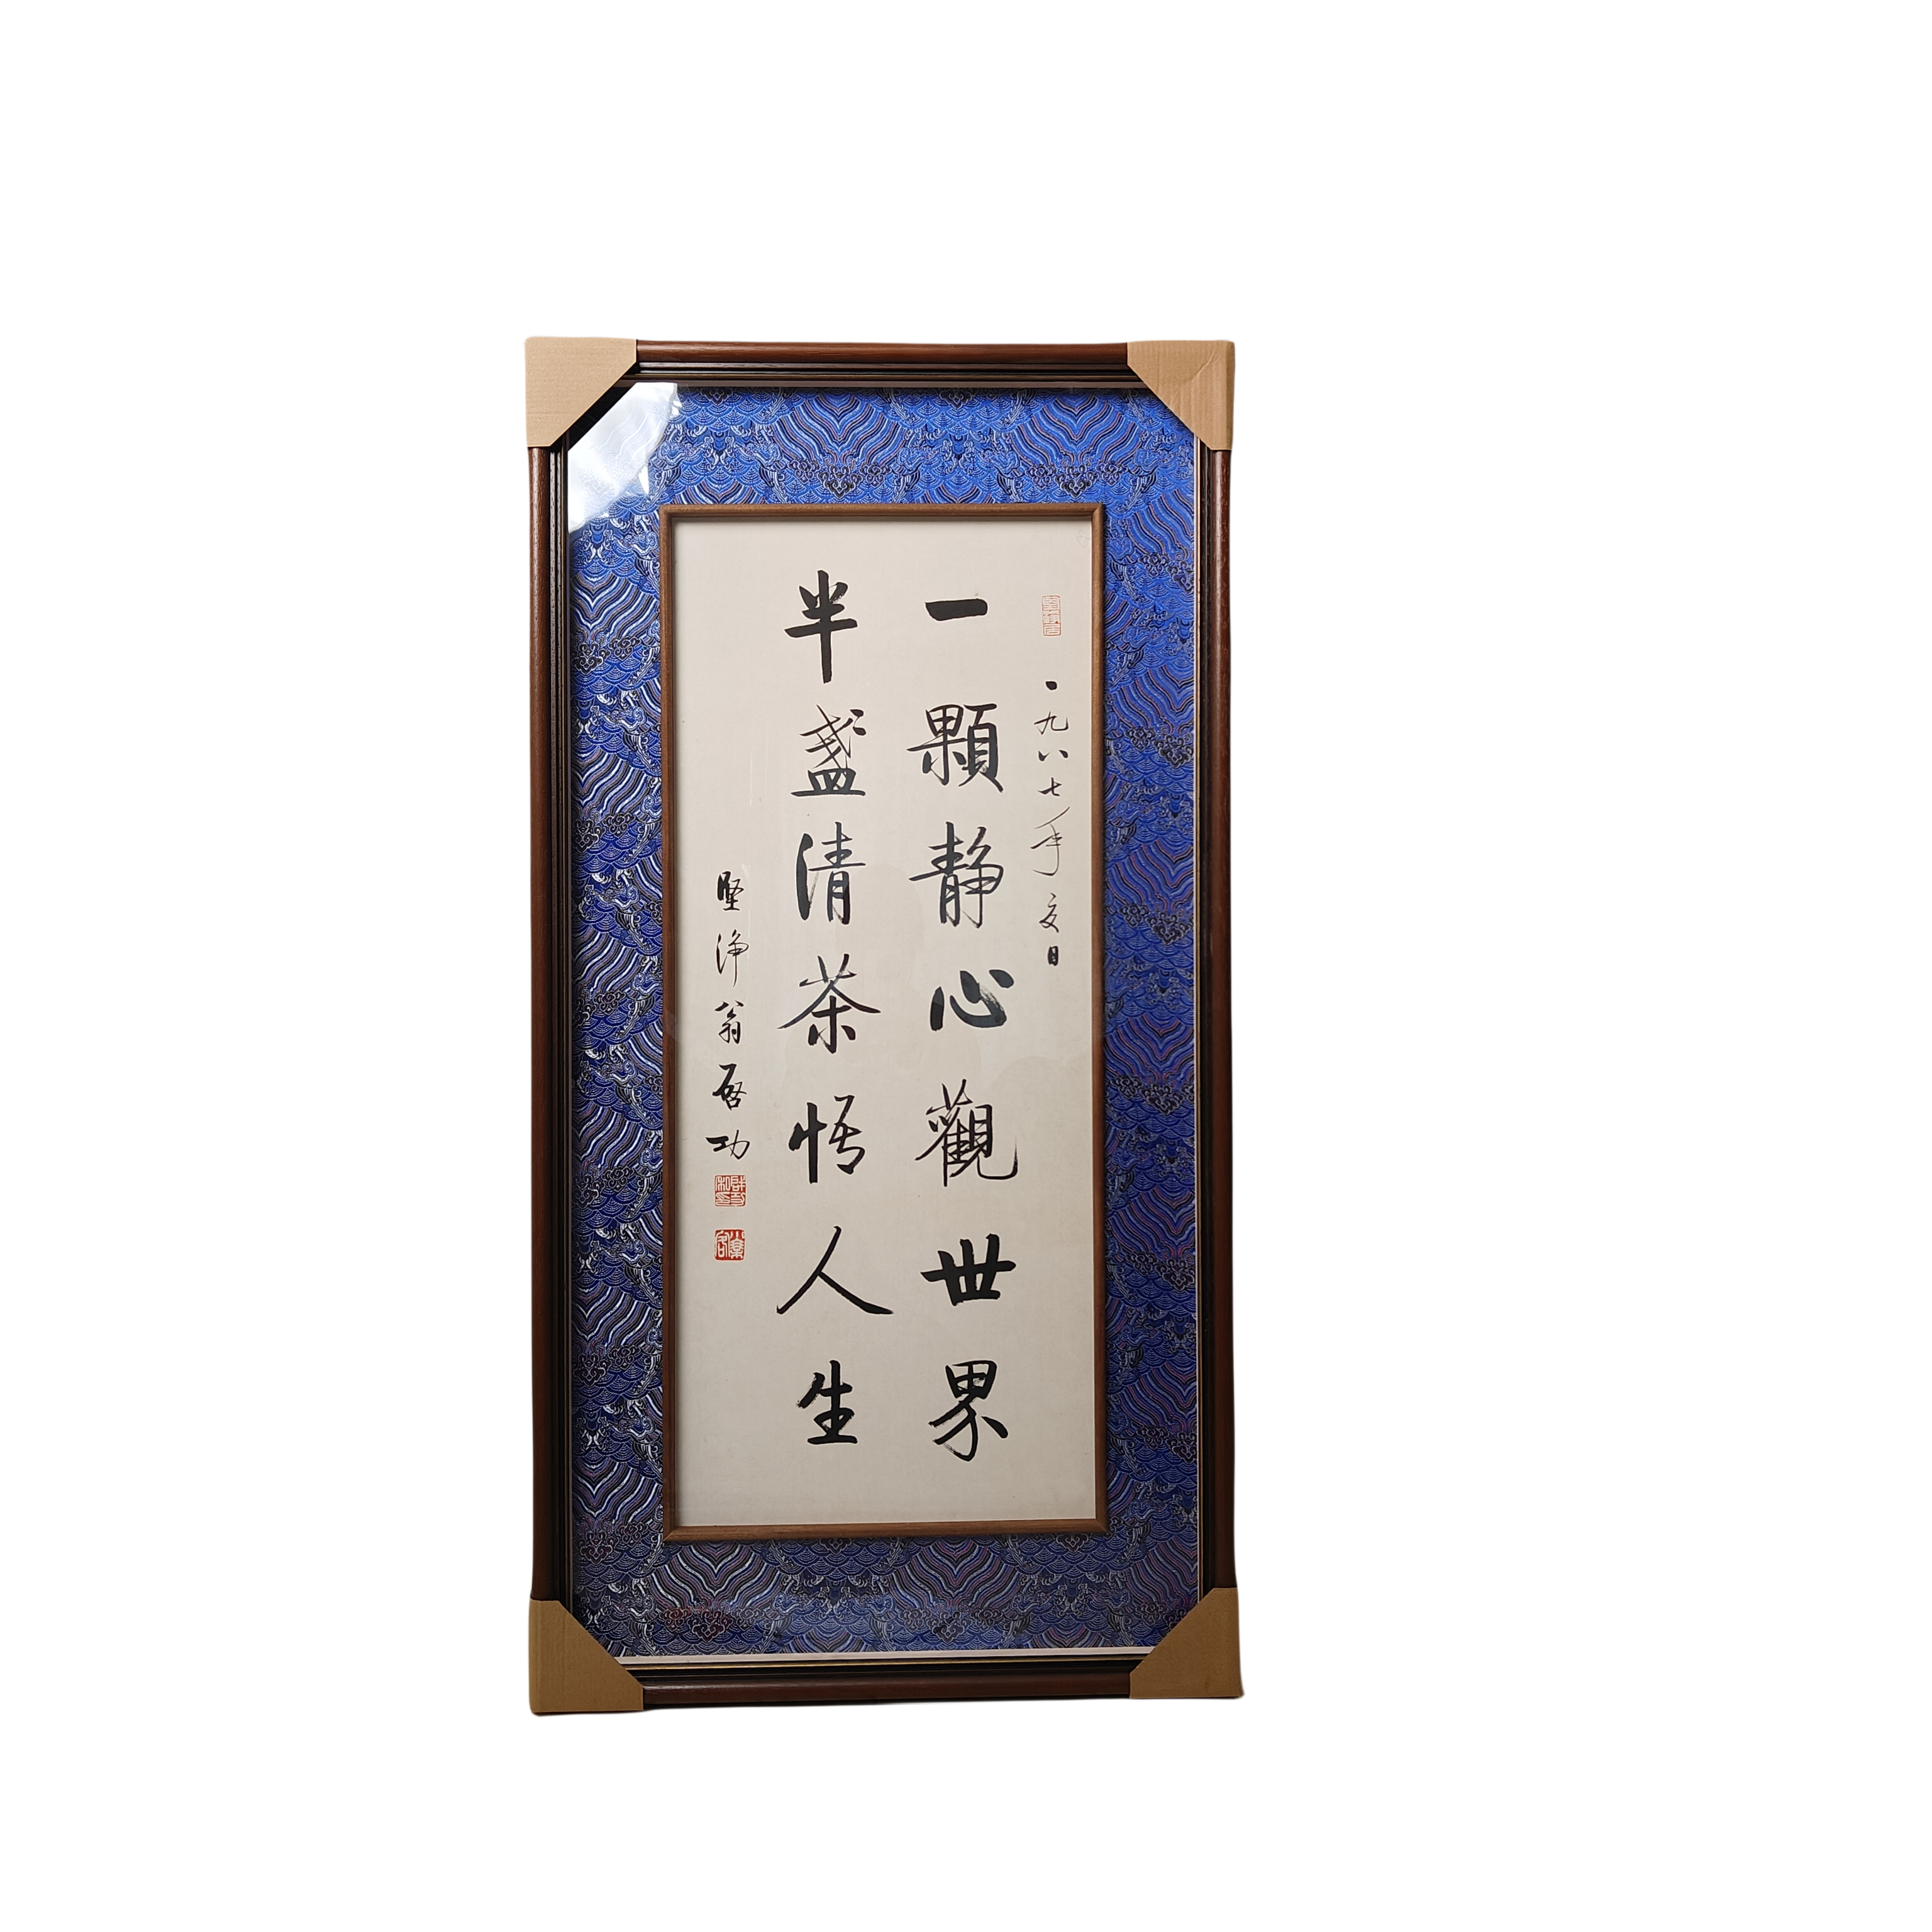 一九八七年夏日
一顆静心觀世界
半盞清茶悟人生
堅浄翁启功